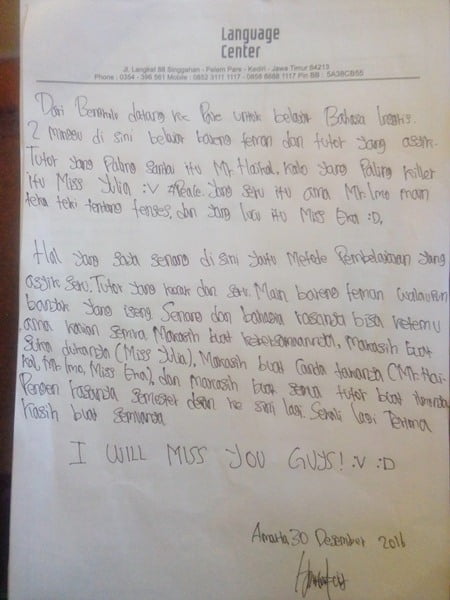 Language
Center
Jl. Langkat 88 Singgahan - Palem Pare - Kediri - Jawa Timur 64213
Phone : 0354 - 396 561 Mobile : 0852 3111 1117 - 0856 8888 1117 Pin BB : 5A38CB55
Dari datang ke Pare untuk belajar Bahasa Inggris.
2 minggu di sini belajar bareng teman dan tutor yang asyik.
Tutor yang Paling Santai itu Mr. Haikal, kalo yang Paling killer
itu Miss Yulia :V #Peace. Yang seru itu ama Mr. Imo main
teka teki tentang tenses, dan yang lucu itu Miss Eka :D.
Hal yang saya senang di sini yaitu Metode Pembelajaran yang
asyik seru. Tutor yang kocak dan seru. Main bareng teman walaupun
banyak yang iseng. Senang dan bahagia rasanya bisa ketemu
ama kalian semua. Makasih buat kebersamaannya, Makasih buat
Suka dukanya (Miss Yulia), Makasih buat Canda tawanya (Mr. Hai-
kal, Mr. Imo, Miss Eka), dan makasih buat semua tutor buat ilmunya
Pengen rasanya semester depan ke sini lagi. Sekali lagi Terima
Kasih buat semuanya
I WILL MISS YOU GUYS! :V :D
30 Desember 2016